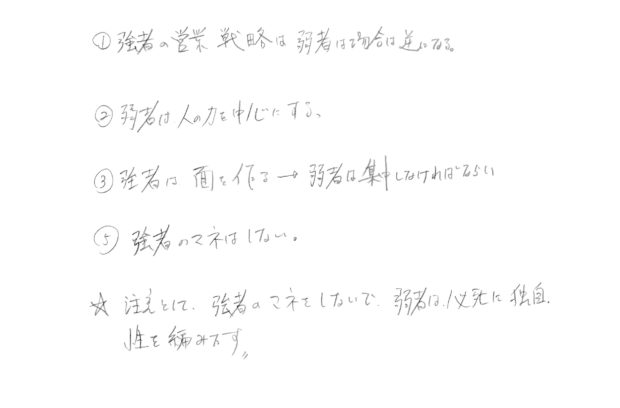 ①強者の営業戦略は弱者は場合は逆になる。
②弱者は人の力を中心にする、
③強者は面を作る→弱者は集中しなければならい
⑤強者のマネはしない。
☆注意として、強者のマネをしないで、弱者は、必死に独自
性を編み出す〃